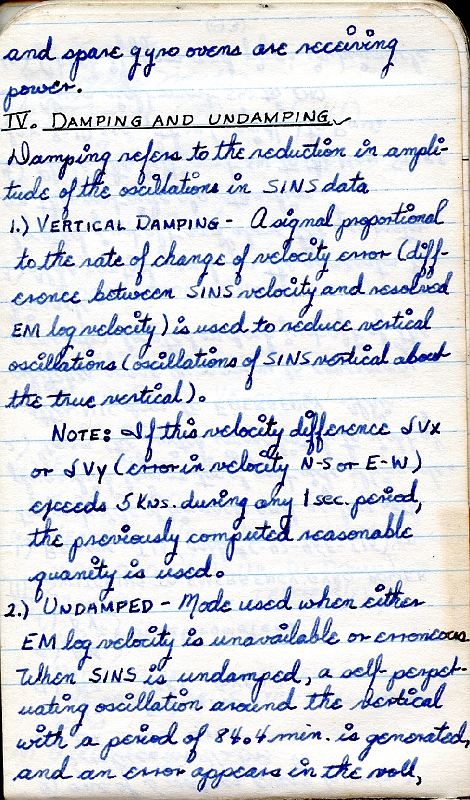 and spare gyro ovens are receiving
power.
IV. DAMPING AND UNDAMPING
Damping refers to the reduction in ampli-
tude of the oscillations in SINS data
1.) VERTICAL DAMPING - A signal proportional
to the rate of change of velocity error (diff-
erence between SINS velocity and resolved
EM log velocity) is used to reduce vertical
oscillations (oscillations of SINS vertical about
the true vertical).
NOTE: If this velocity difference δVx
or δVy (error in velocity N-S or E-W)
exceeds 5 Kns. during any 1 sec. period,
the previously computed reasonable
quanity is used.
2.) UNDAMPED - Mode used when either
EM log velocity is unavailable or erroneous.
When SINS is undamped, a self-perpet-
uating oscillation around the vertical
with a period of 84.4 min. is generated,
and an error appears in the roll,